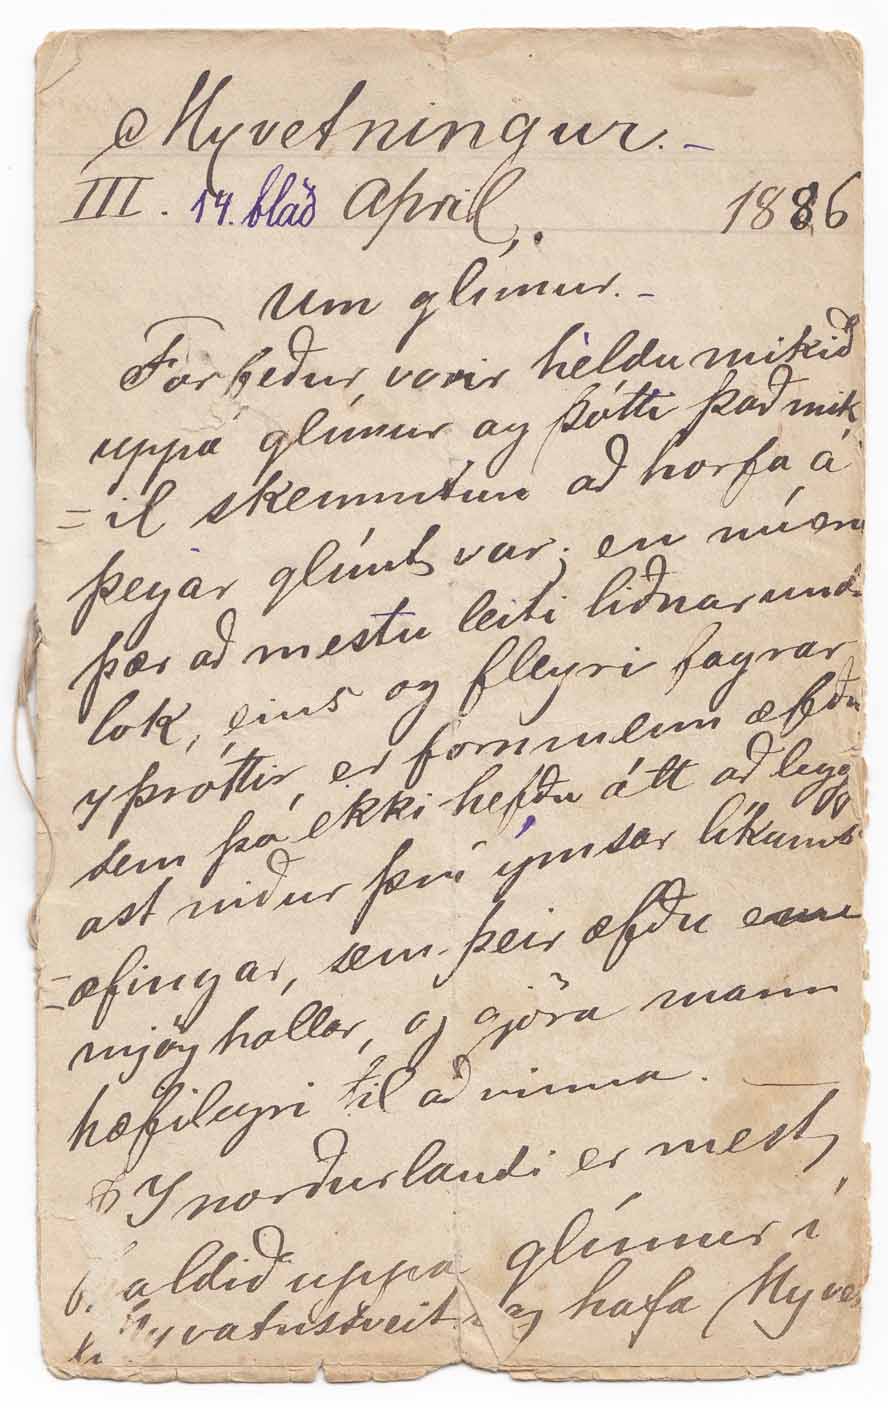 Myvetningur. -
III. 14. blað April. 1886
Um glímur. -
Forfeður vorir héldu mikið
uppá glímur og þótti það mik
= il skemmtun að horfa á
þegar glímt var; en nú eru
þær að mestu leiti liðnar und
lok, eins og fleyri fagrar
yþróttir, er fornmenn æfðu
sem þó ekki hefðu átt að legg
ast niður því ýmsar líkams
= æfingar, sem þeir æfðu eru
mjög hollar, og gjöra mann
hæfilegri til að vinna. —
Y norðurlandi er mest
haldið uppá glímur í
Myvatnssveit og hafa Myve